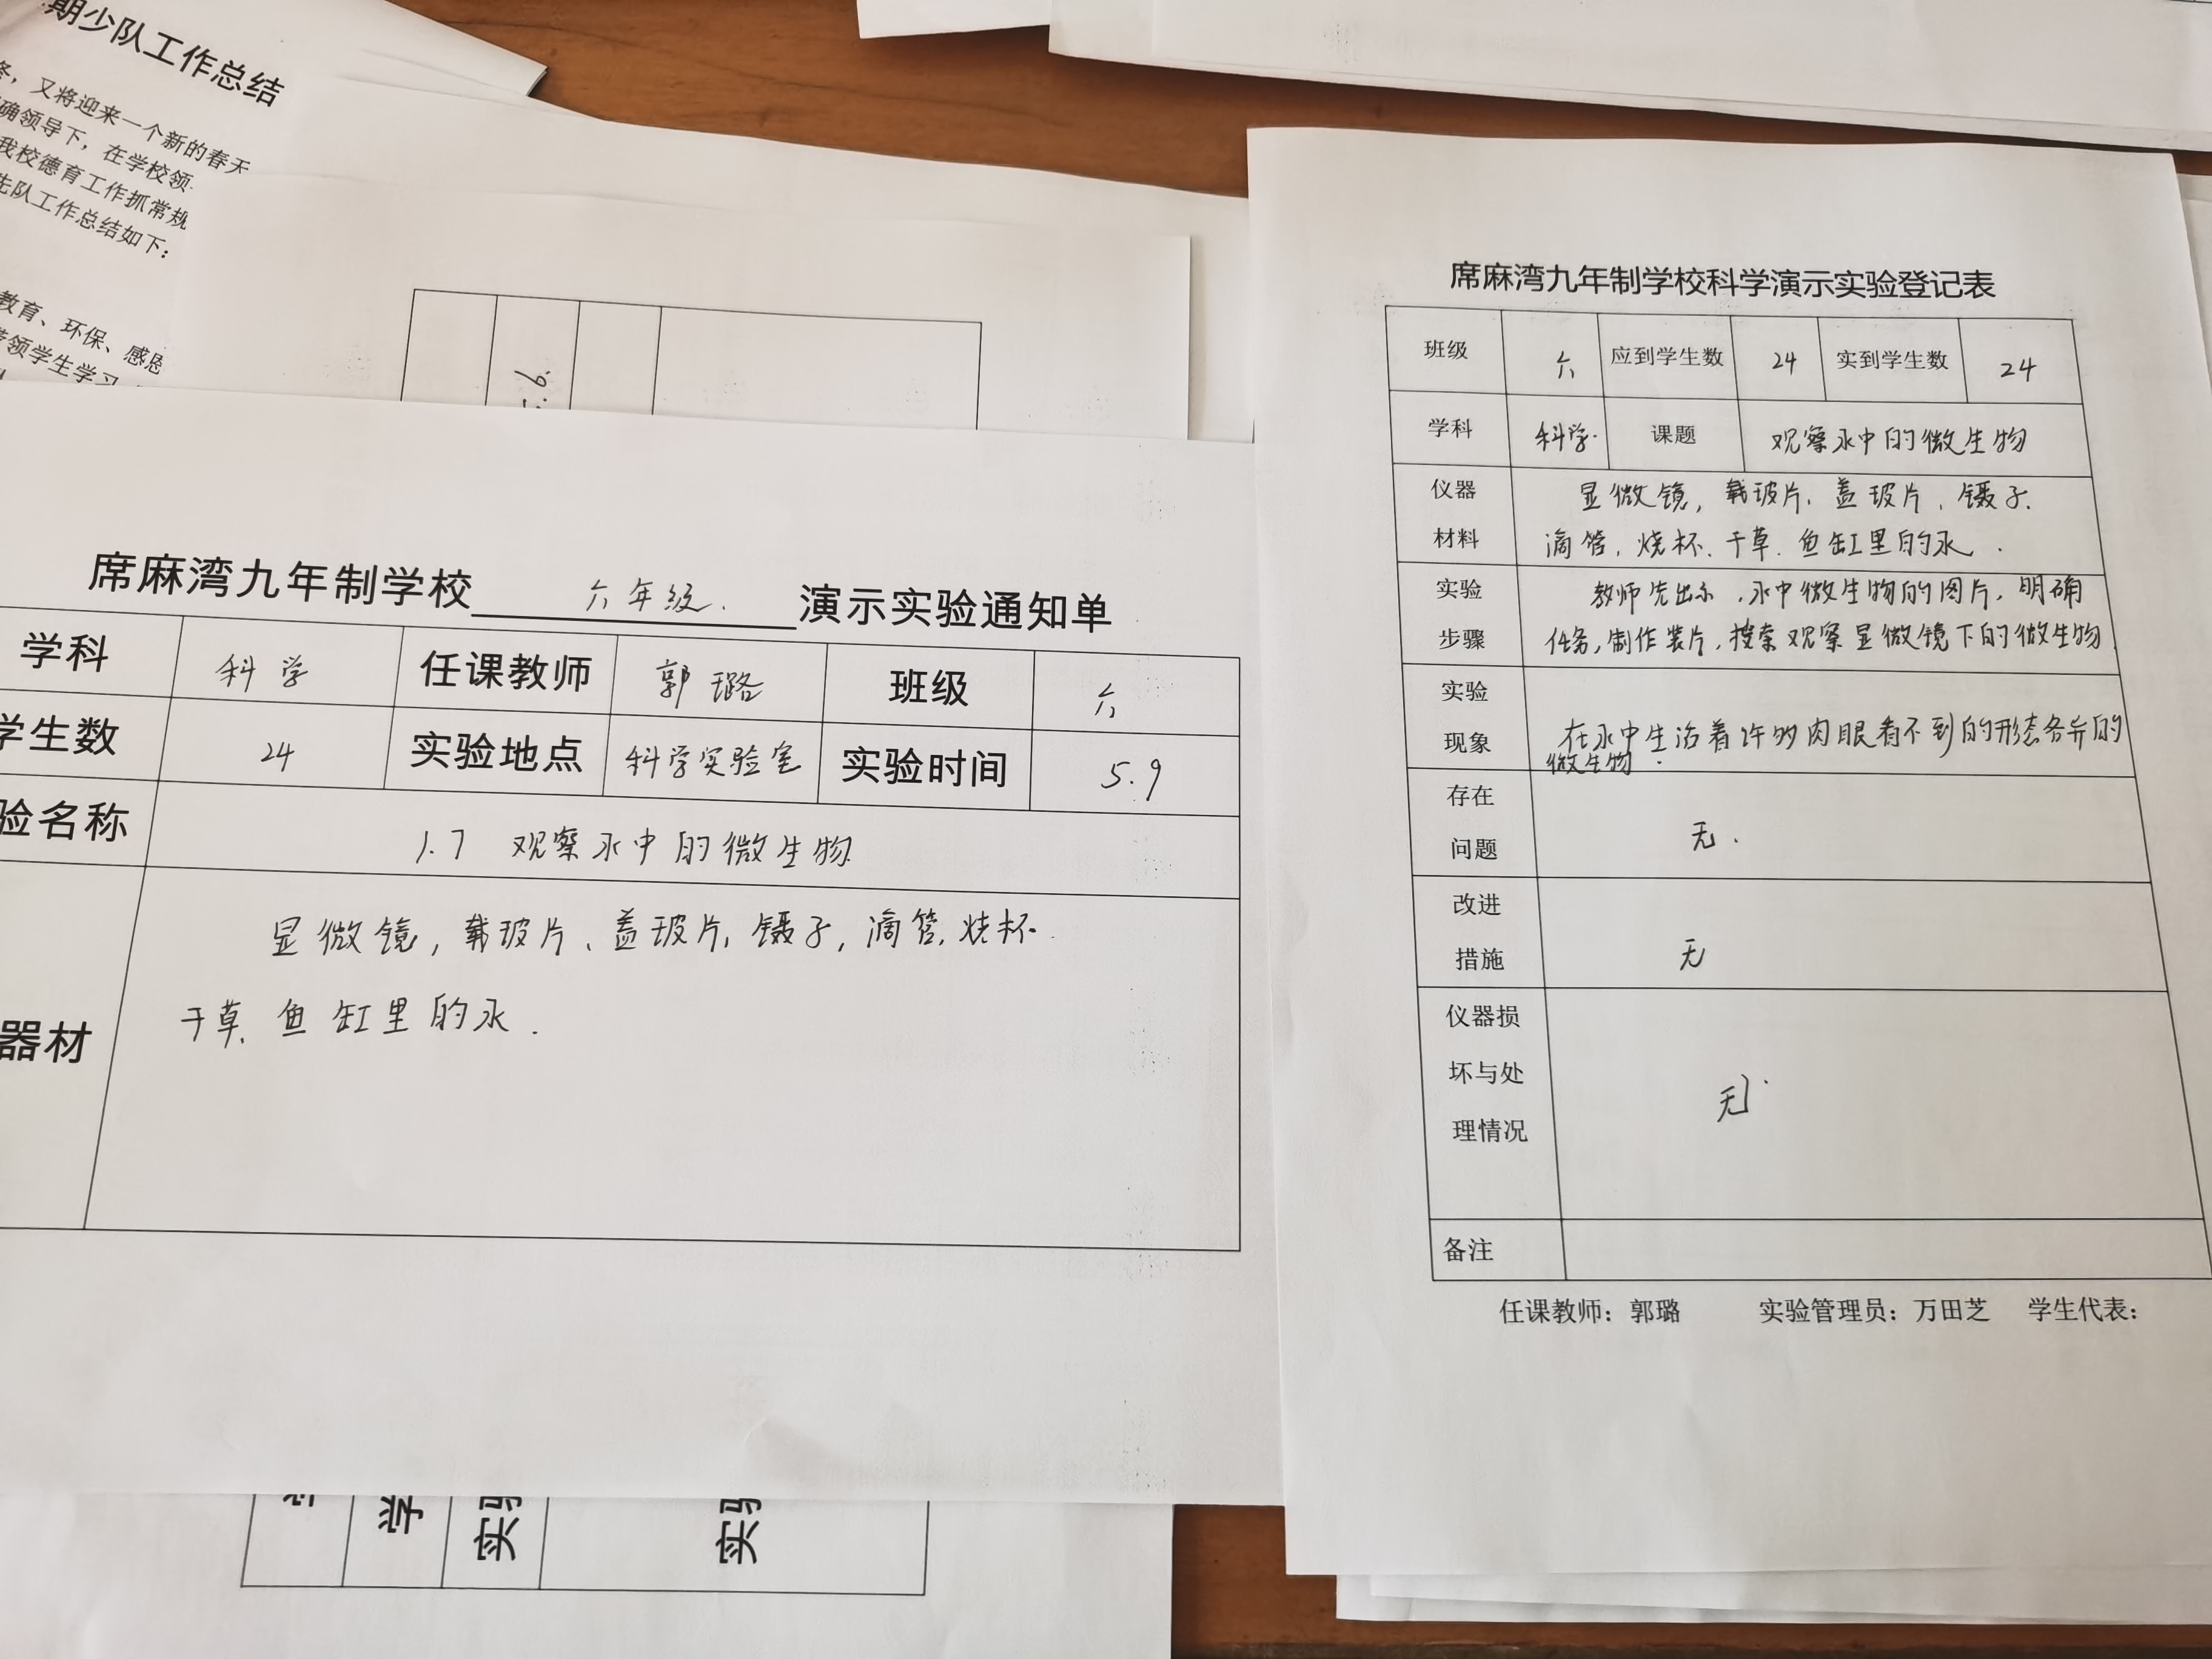 期少队工作总结
又将迎来一个新的春天
确领导下，在学校领
我校德育工作抓常规
先队工作总结如下：
教育、环保、感恩
领学生学习
席麻湾九年制学校 六年级. 演示实验通知单
学科 科学 任课教师 郭璐 班级 六
学生数 24 实验地点 科学实验室 实验时间 5.9
验名称 1.7 观察水中的微生物
器材 显微镜，载玻片、盖玻片，镊子，滴管，烧杯.
干草、鱼缸里的水.
学 实验 实验
席麻湾九年制学校科学演示实验登记表
班级 六 应到学生数 24 实到学生数 24
学科 科学. 课题 观察水中的微生物
仪器 显微镜，载玻片、盖玻片、镊子.
材料 滴管，烧杯、干草、鱼缸里的水.
实验 教师先出示，水中微生物的图片，明确
步骤 任务，制作装片，搜索观察显微镜下的微生物.
实验
现象 在水中生活着许多肉眼看不到的形态各异的
微生物.
存在
问题 无.
改进
措施 无
仪器损
坏与处 无.
理情况
备注
任课教师：郭璐 实验管理员：万田芝 学生代表：